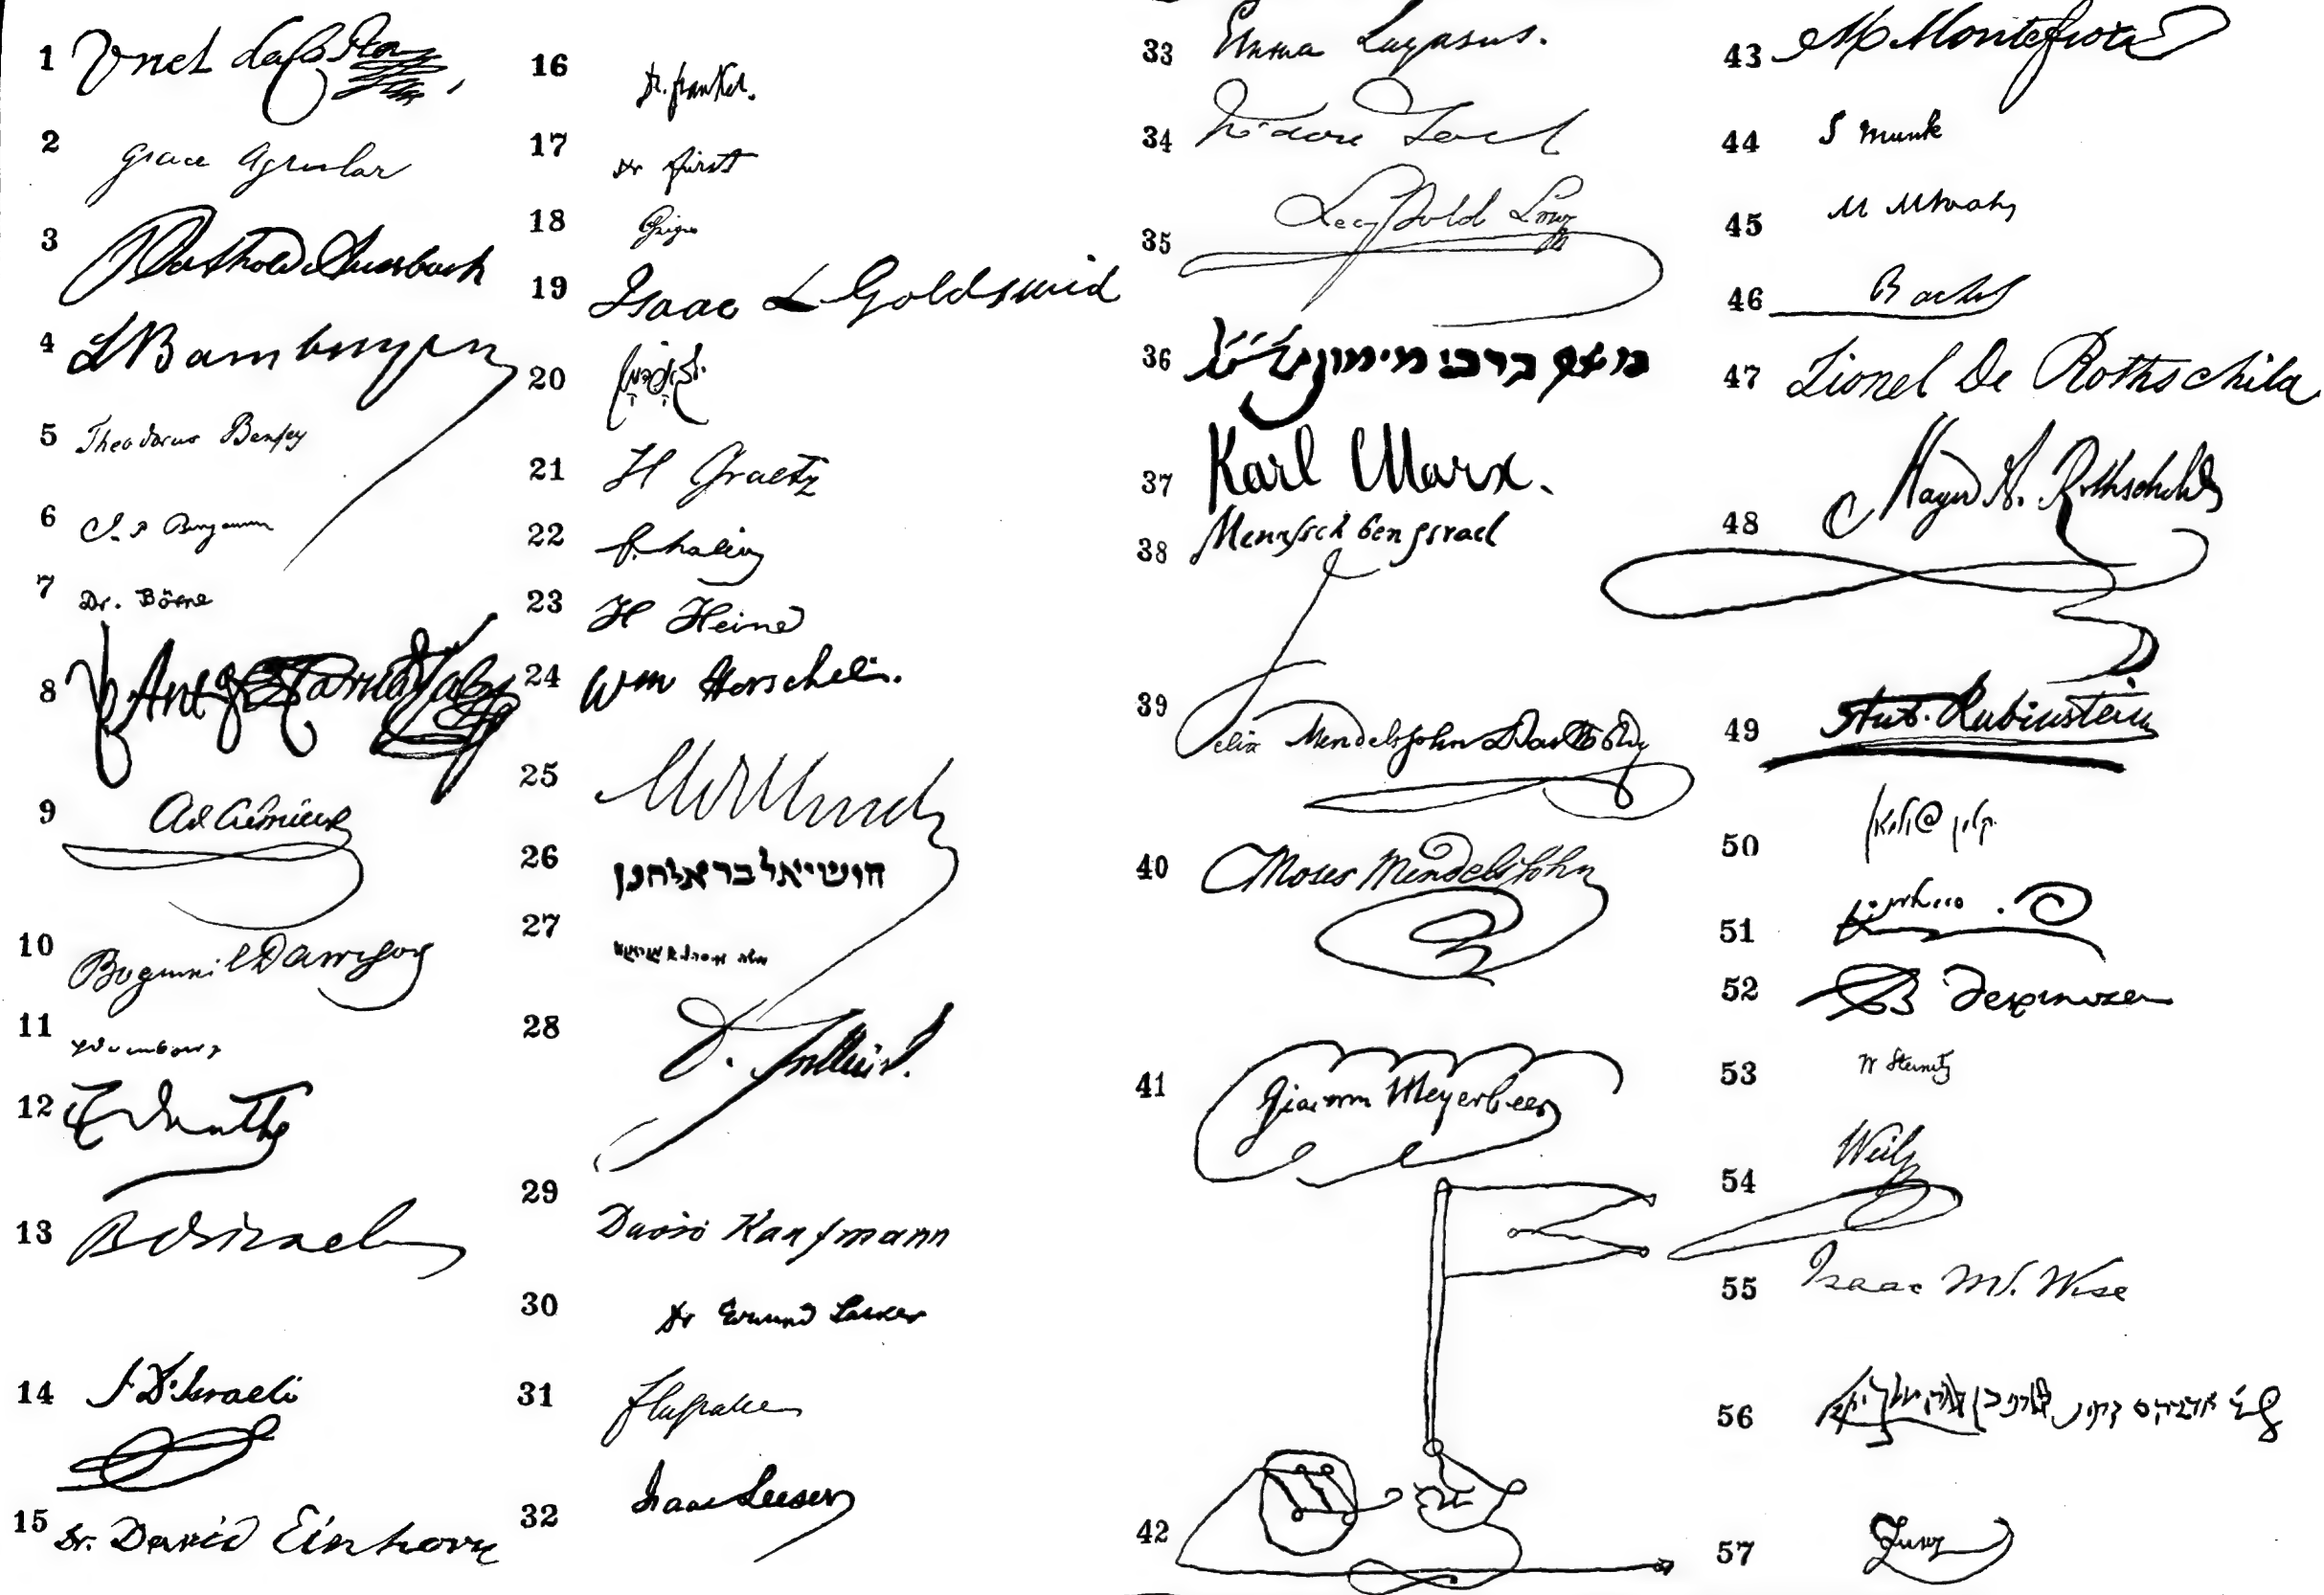 1
2 Grace Aguilar
3 Berthold Auerbach
4 L Bamberger
5 Theodorus Benfey
6 J. P Benjamin
7 Dr. Börne
8
9 Ad Crémieux
10 Bogumil Dawison
11
12
13 B Disraeli
14 I. D'Israeli
15 Dr. David Einhorn
16 Dr. Frankel.
17 Dr Fürst
18 Geiger
19 Isaac L Goldsmid
20
21 H Graetz
22 F. Halévy
23 H Heine
24 Wm Herschel.
25
26 חושיאל בר אלחנן
27
28
29 David Kaufmann
30 Dr Eduard Lasker
31 F Lassalle
32 Isaac Leeser
33 Emma Lazarus.
34 Isidore Loeb
35 Leopold Löw
36 משה ברבי מימון
37 Karl Marx.
38 Menasseh ben Israel
39 Felix Mendelssohn Bartholdy
40 Moses Mendelssohn
41 Giacomo Meyerbeer
42
43 M Montefiore
44 S Munk
45 M M Noah
46 Rachel
47 Lionel De Rothschild
48 Mayer A. Rothschild
49 Ant. Rubinstein
50
51
52 B despinoza
53 W Steinitz
54 Weil
55 Isaac M. Wise
56
57 Zunz